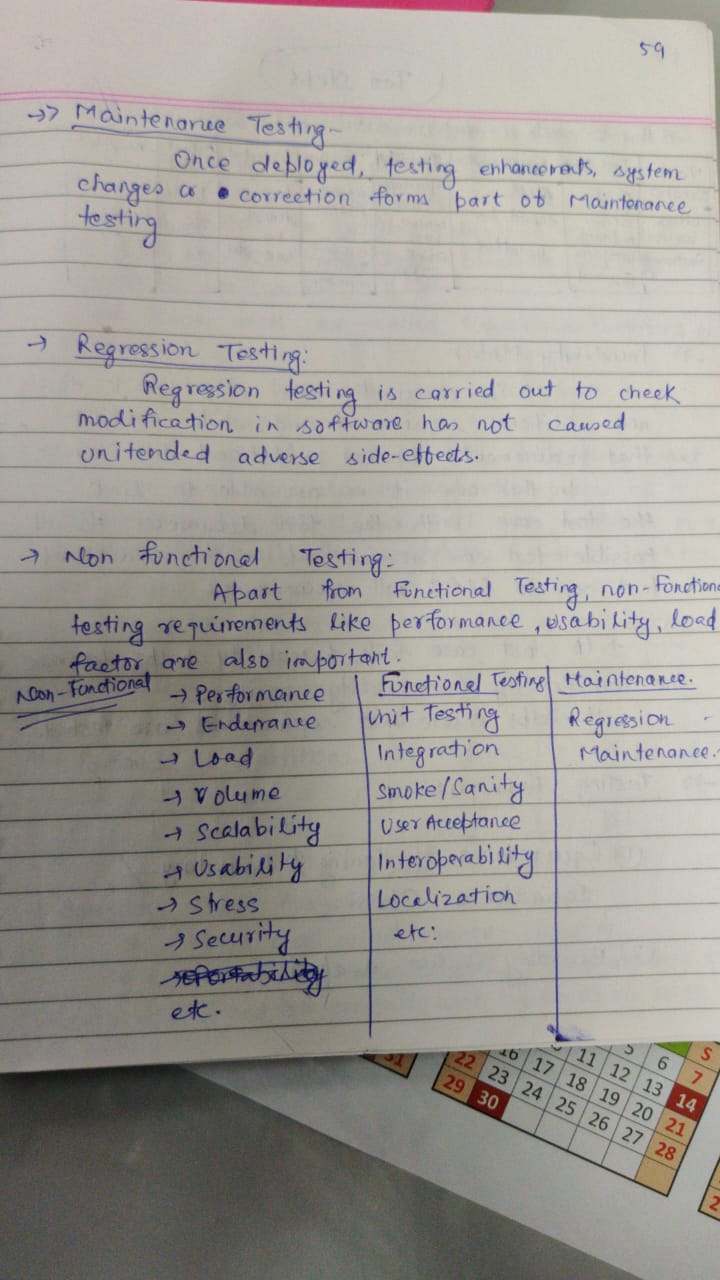 59
→> Maintenance Testing-
Once deployed, testing enhancements, system
changes or correction forms part of Maintenance
testing
→ Regression Testing:
Regression testing is carried out to check
modification in software has not caused
unitended adverse side-effects.
→ Non functional Testing:
Apart from Functional Testing, non-Functiona
testing requirements like performance, usability, load
factor are also important.
Non-Functional → Performance Functional Testing Maintenance.
→ Enderrance Unit Testing Regression
→ Load Integration Maintenance.
→ Volume Smoke/Sanity
→ Scalability User Acceptance
→ Usability Interoperability
→ Stress Localization
→ Security etc:
etc.
5 6 S
16 11 12 13 7
22 17 18 19 20 14
31 23 24 25 26 27 21
29 30 28